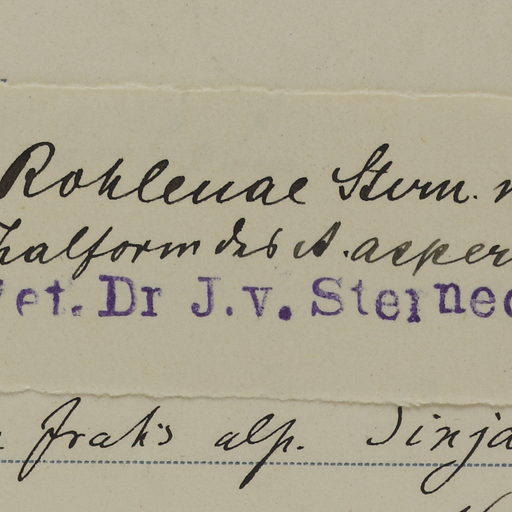 Rohlenae Stern.
Thalform des A. asper
Det. Dr J. v. Sternec
pratis alp. Sinja